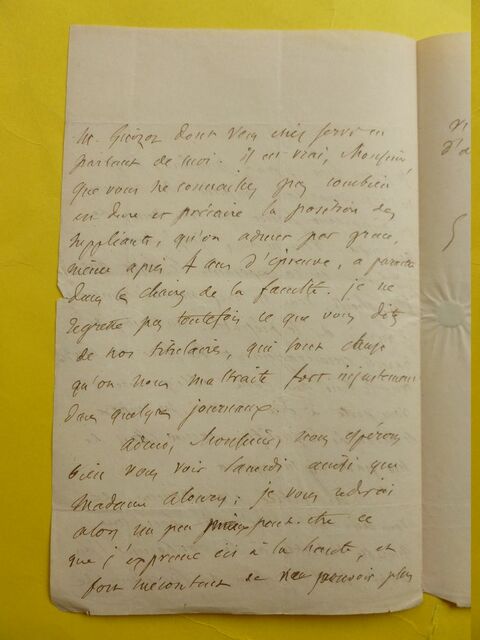 Mr. Guizot dont vous vous servez en
parlant de moi. Il est vrai, Monsieur,
que vous ne connaissez pas combien
est dure et précaire la position des
suppléants, qu'on admet par grace,
même après 4 ans d'épreuve, a paraitre
dans les chaires de la faculté. je ne
regrette pas toutefois ce que vous dites
de nos titulaires, qui sont cause
qu'on nous maltraite fort injustement
dans quelques journaux.
adieu, Monsieur, nous espérons
bien vous voir Samedi ainsi que
Madame ; je vous redirai
alors un peu mieux peut-être ce
que j'exprime ici à la hâte, et
fort mécontent de ne pouvoir plus